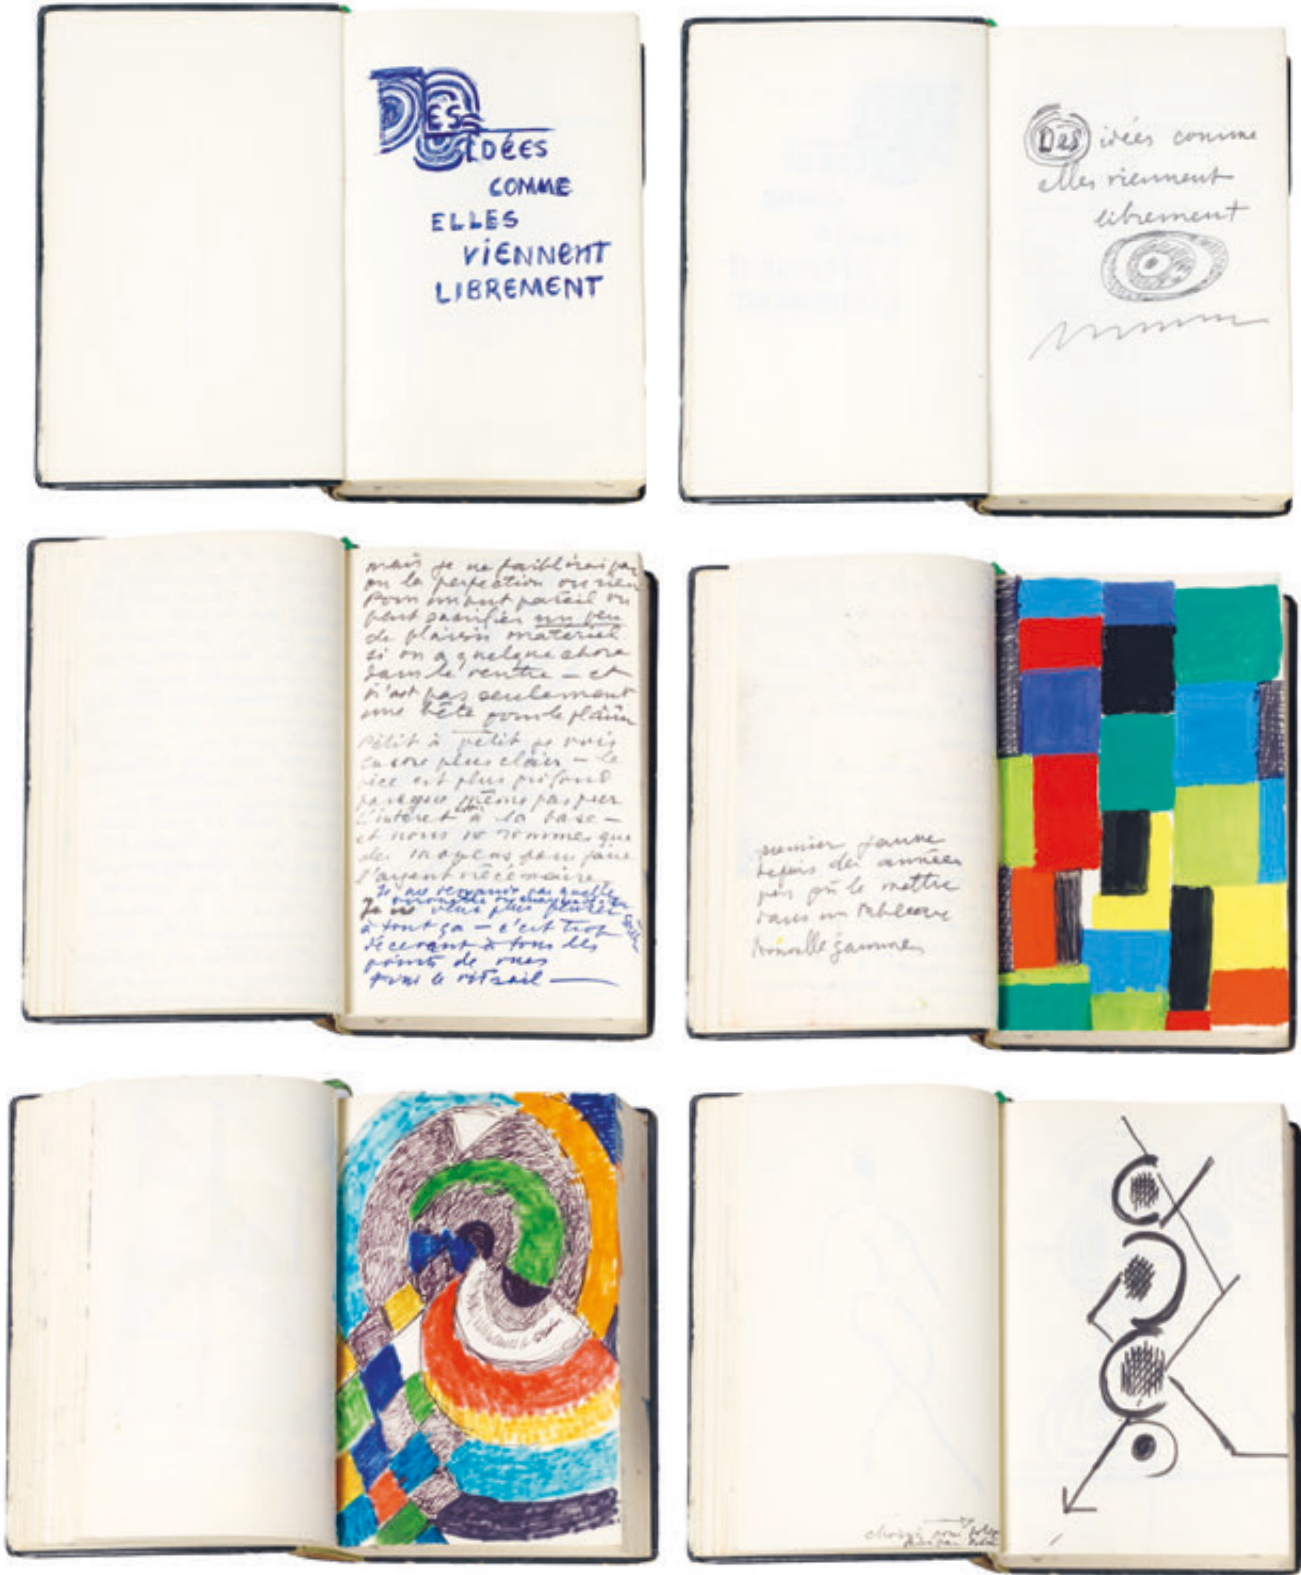 DES
IDÉES
COMME
ELLES
VIENNENT
LIBREMENT
Des idées comme
elles viennent
librement
mais je ne faiblirai pas
ou la perfection ou rien
Pour un but pareil on
peut sacrifier un peu
de plaisir materiel
si on a quelque chose
dans le ventre – et
n'est pas seulement
une bête pour le plaisir
Petit à petit je vois
encore plus clair – le
vice est plus profond
parce que même pas par
l'interet à la base –
et nous ne sommes que
des moyens pour faire
l'argent nécéssaire
Je ne veux plus penser
à tout ça – c'est trop
décevant à tous les
points de vues
sauf le travail —
premier jaune
depuis des années
pas pû le mettre
dans un tableau
Nouvelle gamme
choisi pour